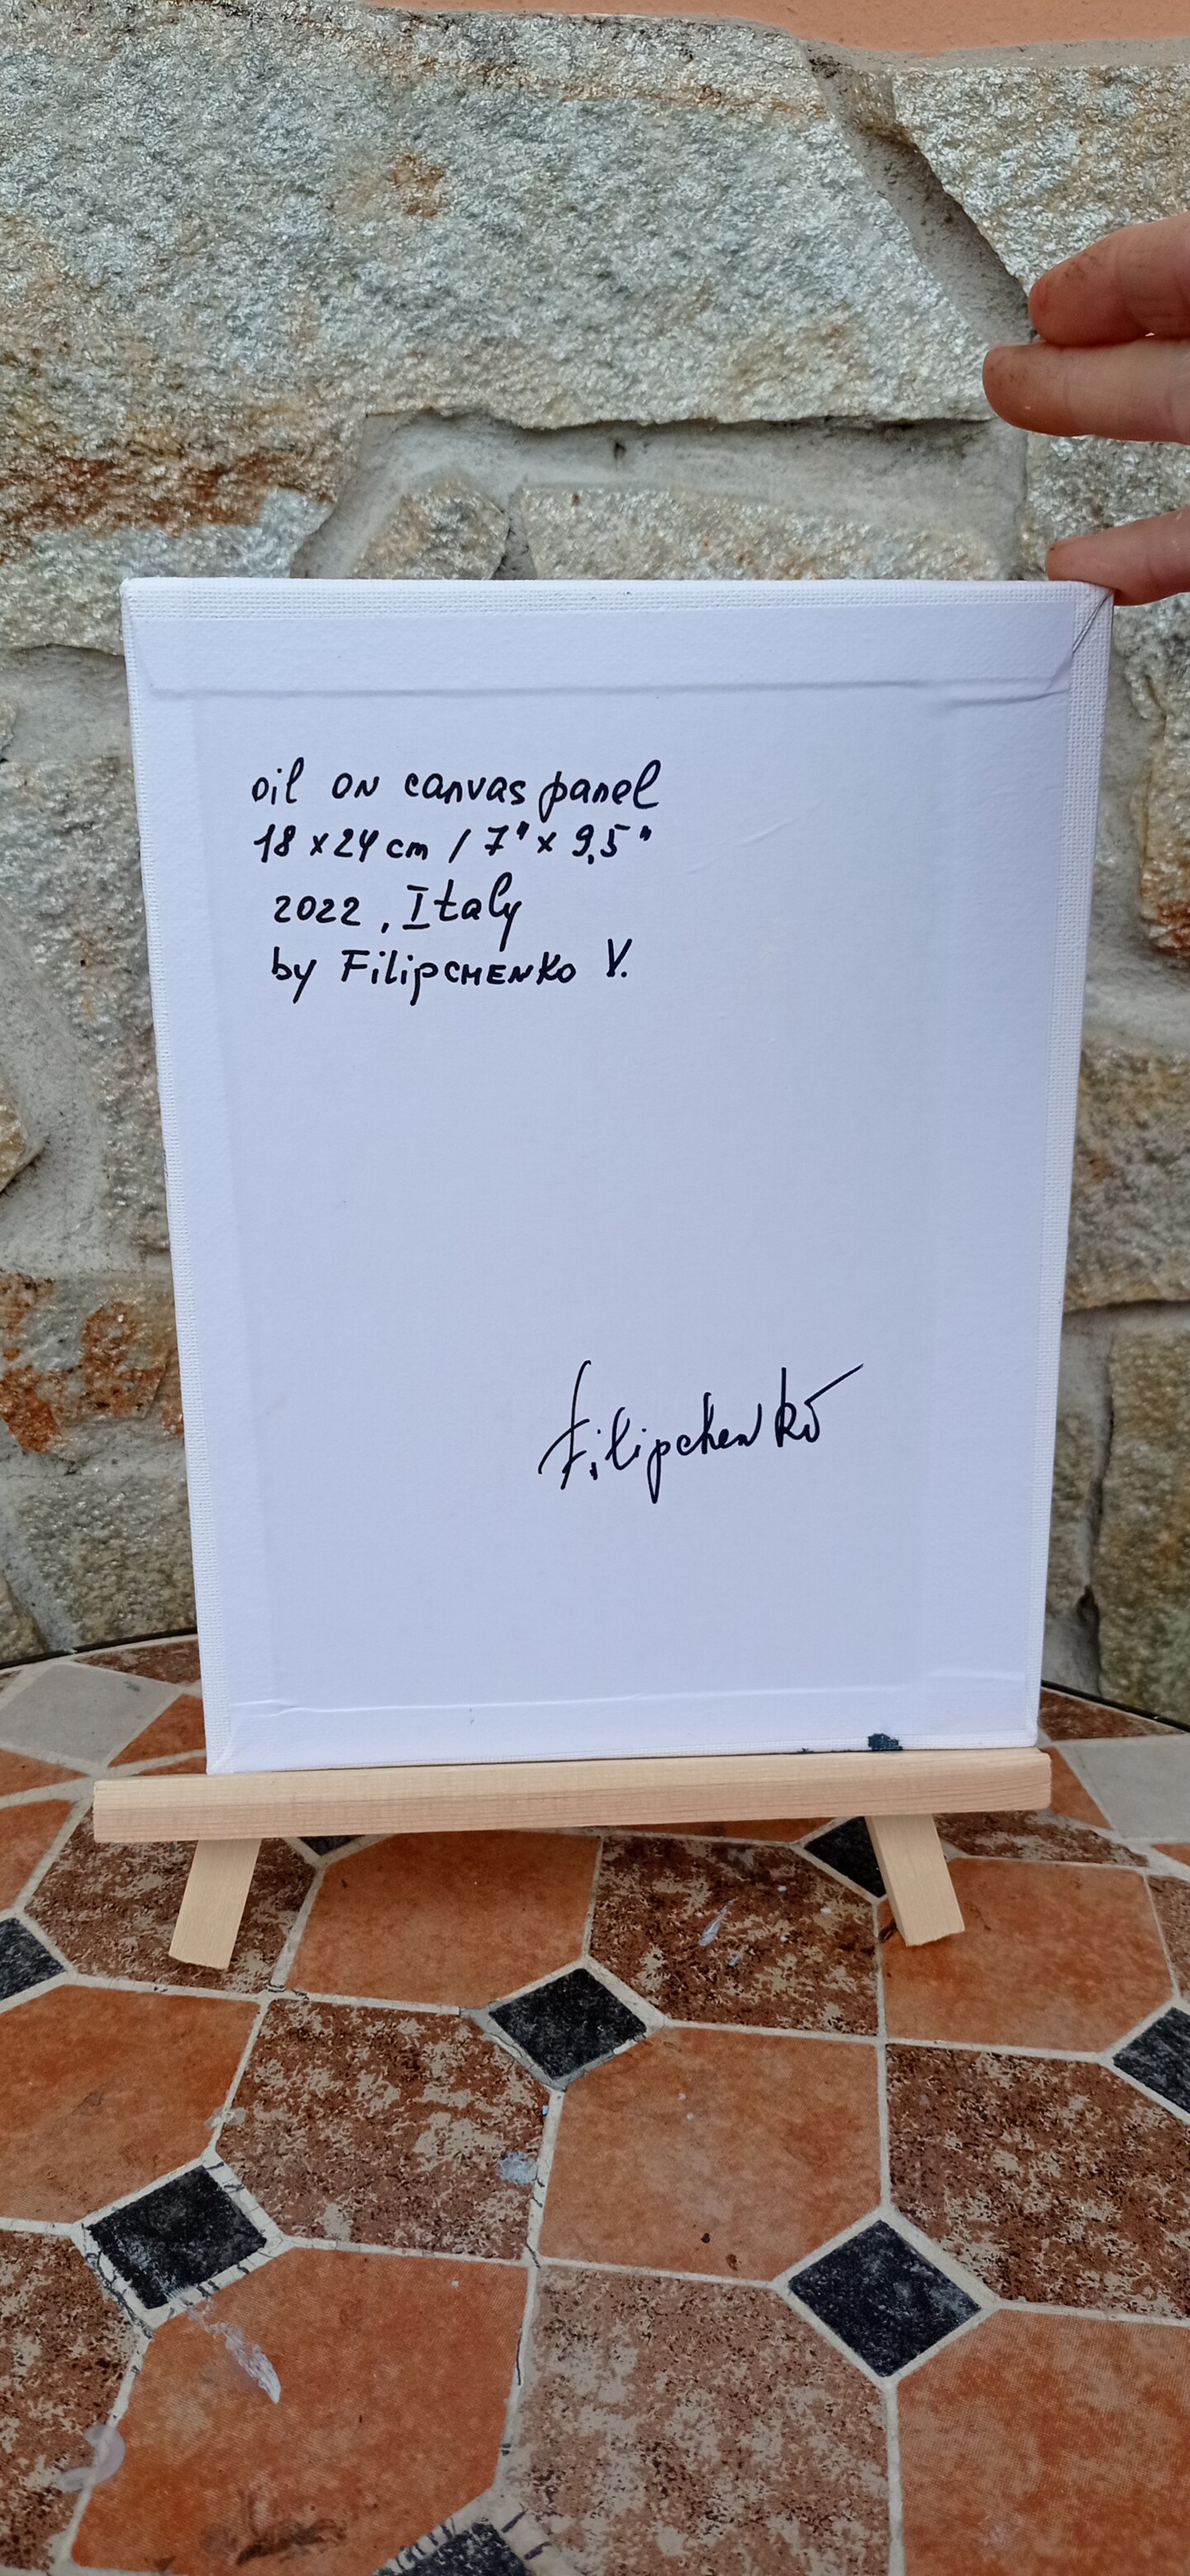 oil on canvas panel
18 x 24 cm / 7" x 9,5"
2022, Italy
by Filipchenko V.
Filipchenko